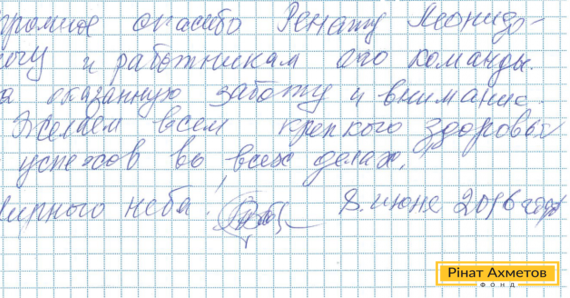 громное спасибо Ренату Леонидо-
вичу и работникам его команды.
за оказанную заботу и внимание.
Желаем всем крепкого здоровья
успехов во всех делах,
мирного неба! 8. июня 2016 года
Рінат Ахметов
ФОНД